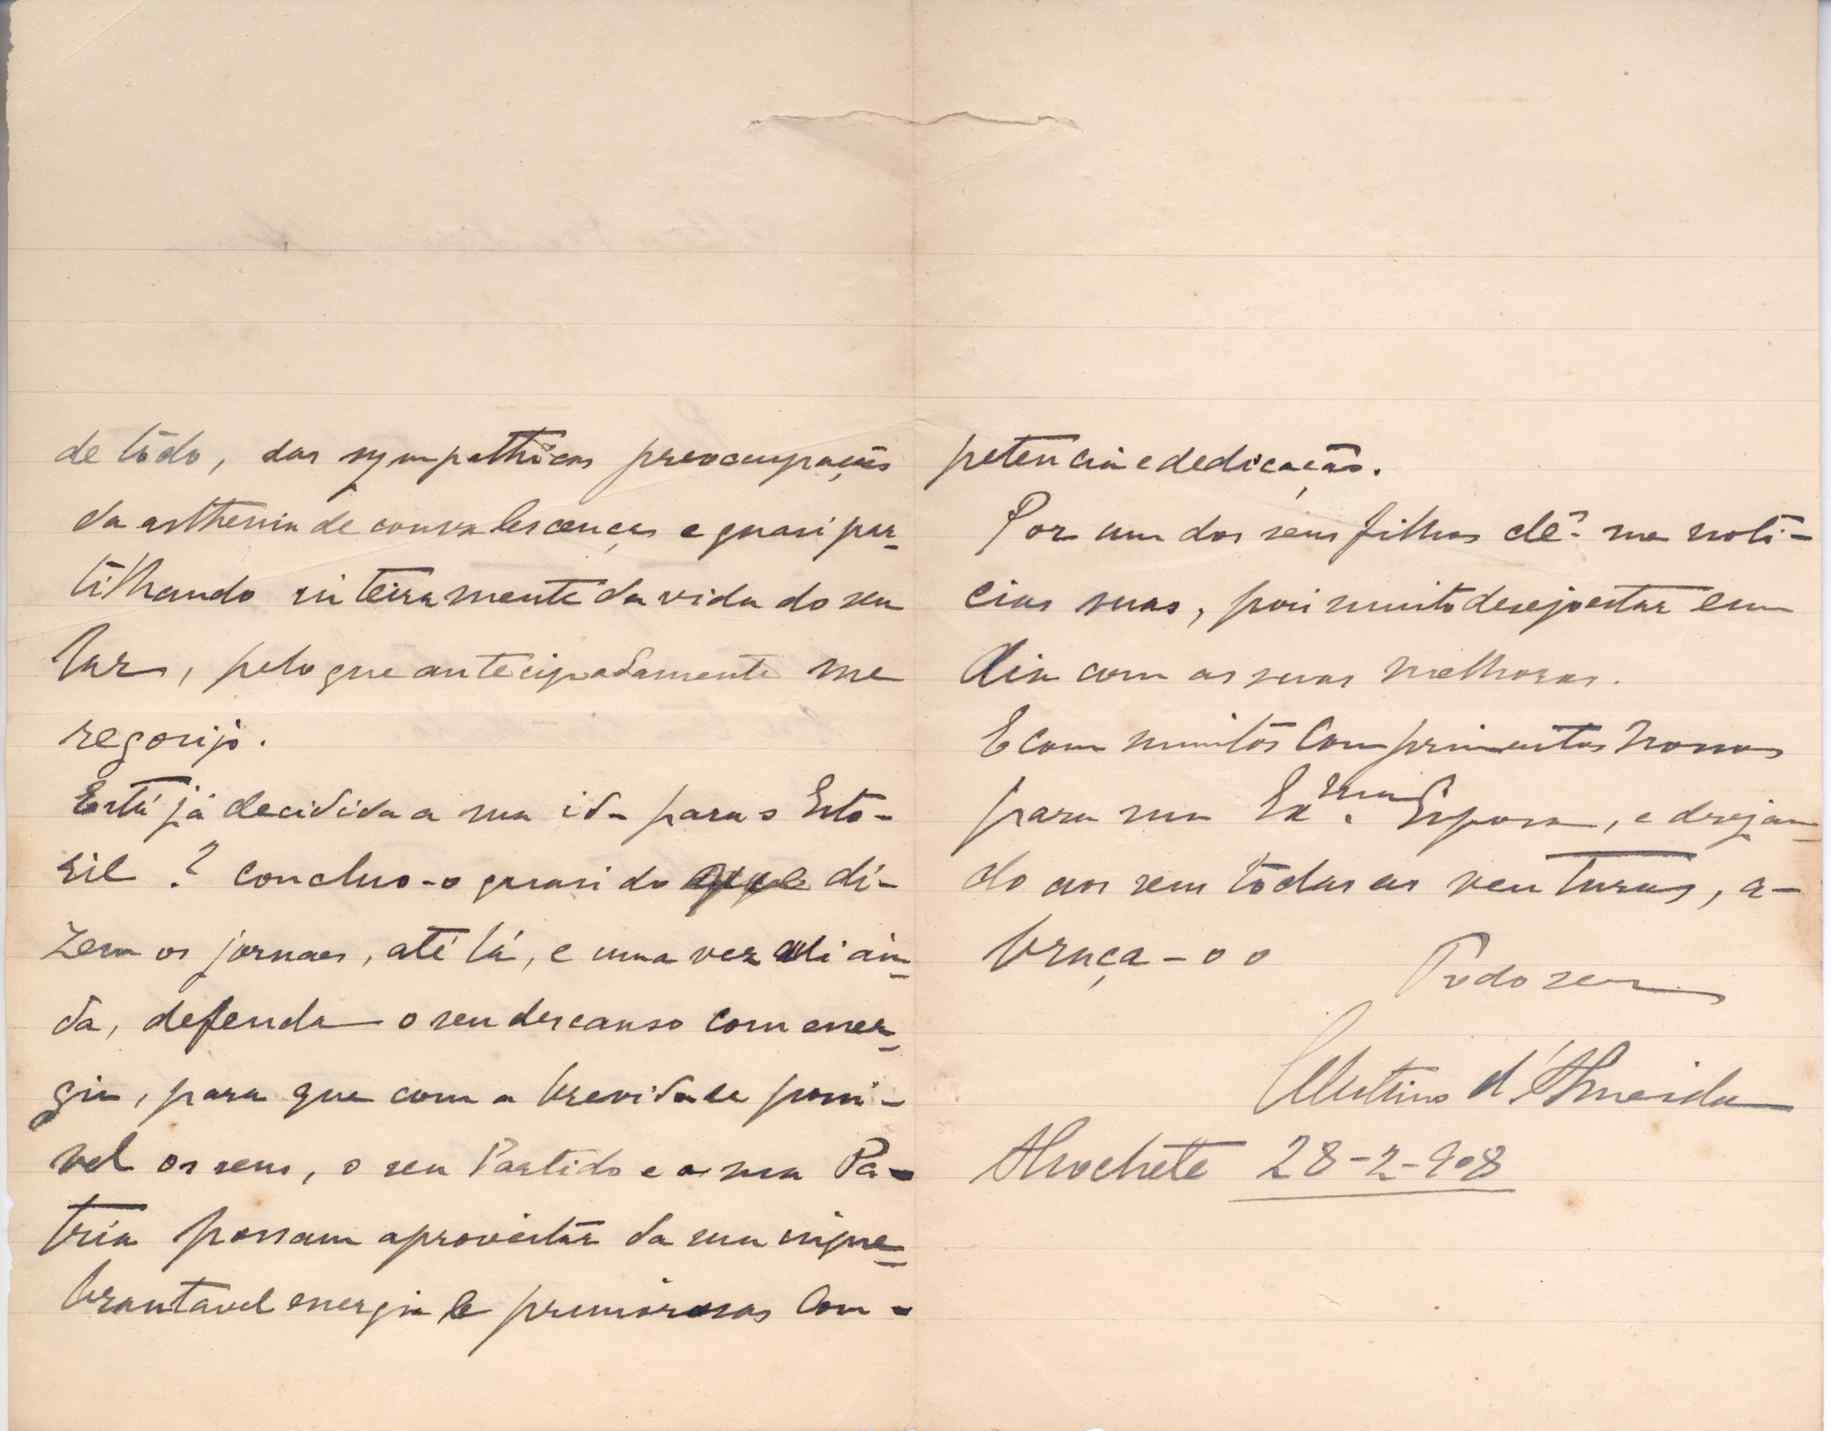 de tôdo, das sympathicas preoccupações
da asthenia de convalescenças e quasi par-
tilhando inteiramente da vida do seu
lar, pelo que antecipadamente me
regosijo.
Está já decidida a sua ida para o Esto-
ril? Concluo-o quasi do que di-
zem os jornaes, até lá, e uma vez ali ain-
da, defenda o seu descanso com ener-
gia, para que com a brevidade possi-
vel os seus, o seu Partido e a sua Pa-
tria possam aproveitar da sua inque-
brantavel energia e primorosas Com-
petencia e dedicação.
Por um dos seus filhos dê-me noti-
cias suas, pois muito desejo estar em
dia com as suas melhoras.
E com muitos Comprimentos nossos
para sua Exma. Esposa, e desejan-
do aos seus todas as venturas, a-
braça-o o
Todo seu
Celestino d'Almeida
Alcochete 28-2-908